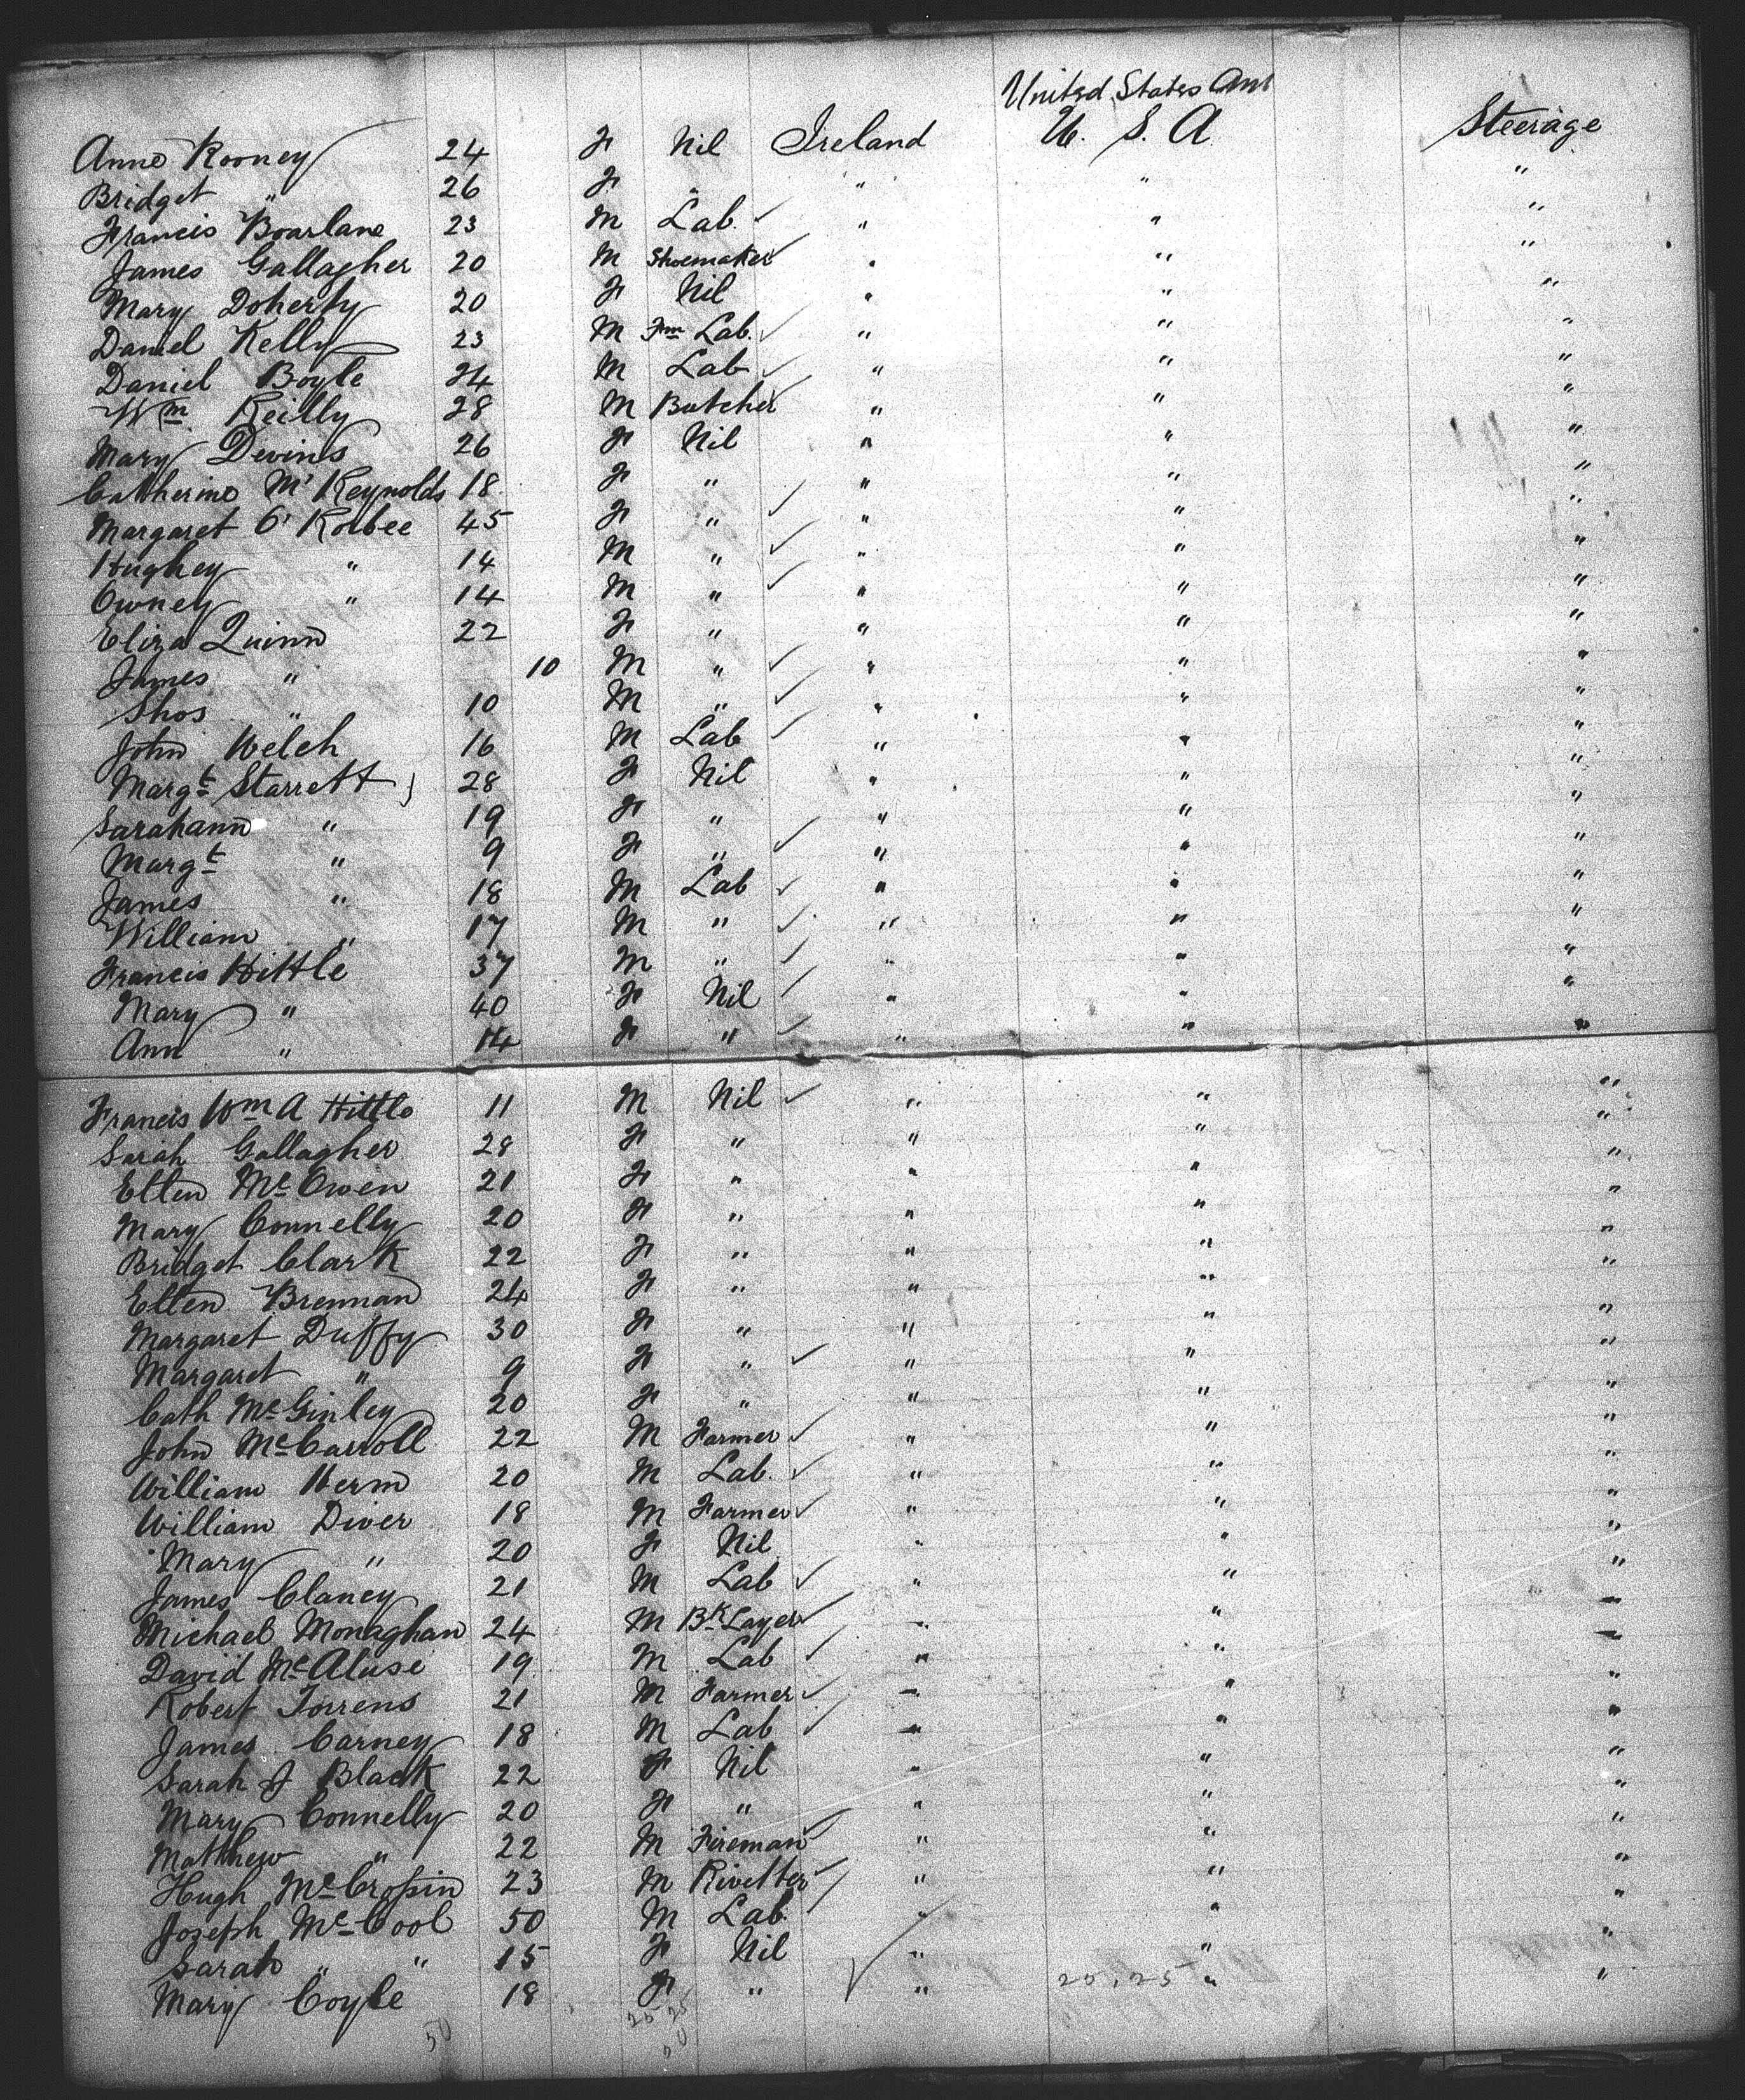 United States Am
Anne Rooney 24 F Nil Ireland U. S. A. Steerage
Bridget " 26 F " " " "
Francis Boarlane 23 M Lab. " " "
James Gallagher 20 M Shoemaker " " "
Mary Doherty 20 F Nil " " "
Daniel Kelly 23 M Fm Lab. " " "
Daniel Boyle 24 M Lab " " "
Wm Reilly 28 M Butcher " " "
Mary Devins 26 F Nil " " "
Catherine Mc Reynolds 18 F " " " "
Margaret O' 45 F " " " "
Hughey " 14 M " " " "
Owney " 14 M " " " "
Eliza Quinn 22 F " " " "
James " 10 M " " " "
Thos " 10 M " " " "
John Welch 16 M Lab " " "
Margt Starrett 28 F Nil " " "
Sarahann " 19 F " " " "
Margt " 9 F " " " "
James " 18 M Lab " " "
William " 17 M " " " "
Francis Hittle 37 M " " " "
Mary " 40 F Nil " " "
Ann " 14 F " " " "
Francis Wm A Hittle 11 M Nil " " "
Sarah Gallagher 28 F " " " "
Ellen Mc Owen 21 F " " " "
Mary Connelly 20 F " " " "
Bridget Clark 22 F " " " "
Ellen Brennan 24 F " " " "
Margaret Duffy 30 F " " " "
Margaret " 9 F " " " "
Cath McGinley 20 F " " " "
John McCarroll 22 M Farmer " " "
William Herm 20 M Lab. " " "
William Diver 18 M Farmer " " "
Mary " 20 F Nil " " "
James Clancy 21 M Lab " " "
Michael Monaghan 24 M Bk Layer " " "
David Mc 19 M Lab " " "
Robert Torrens 21 M Farmer " " "
James Carney 18 M Lab " " "
Sarah J Black 22 F Nil " " "
Mary Connelly 20 F " " " "
Matthew " 22 M Fireman " " "
Hugh Mc 23 M Rivetter " " "
Joseph McCool 50 M Lab. " " "
Sarah " " 15 F Nil " " "
Mary Coyle 18 F " " 25, 25 " "
50 25 25
50